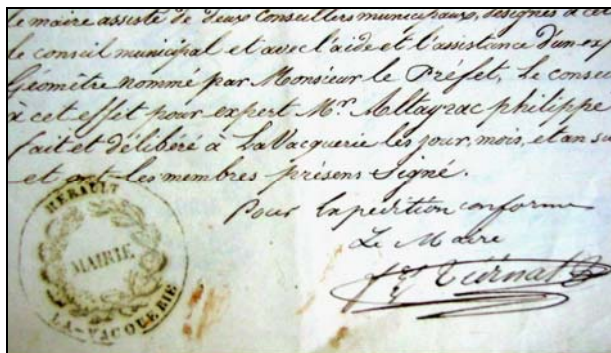 le maire assisté de deux Conseillers municipaux, désignés à cet
le conseil municipal et avec l'aide et l'assistance d'un exp
Géomètre nommé par Monsieur le Préfet, Le conse
à cet effet pour expert Mr. Altayrac philippe
fait et délibéré à LaVacquerie les jour, mois, et an su
et ont les membres présens Signé.
Pour Expédition conforme
Le Maire
HERAULT
MAIRIE
LA-VACQUERIE